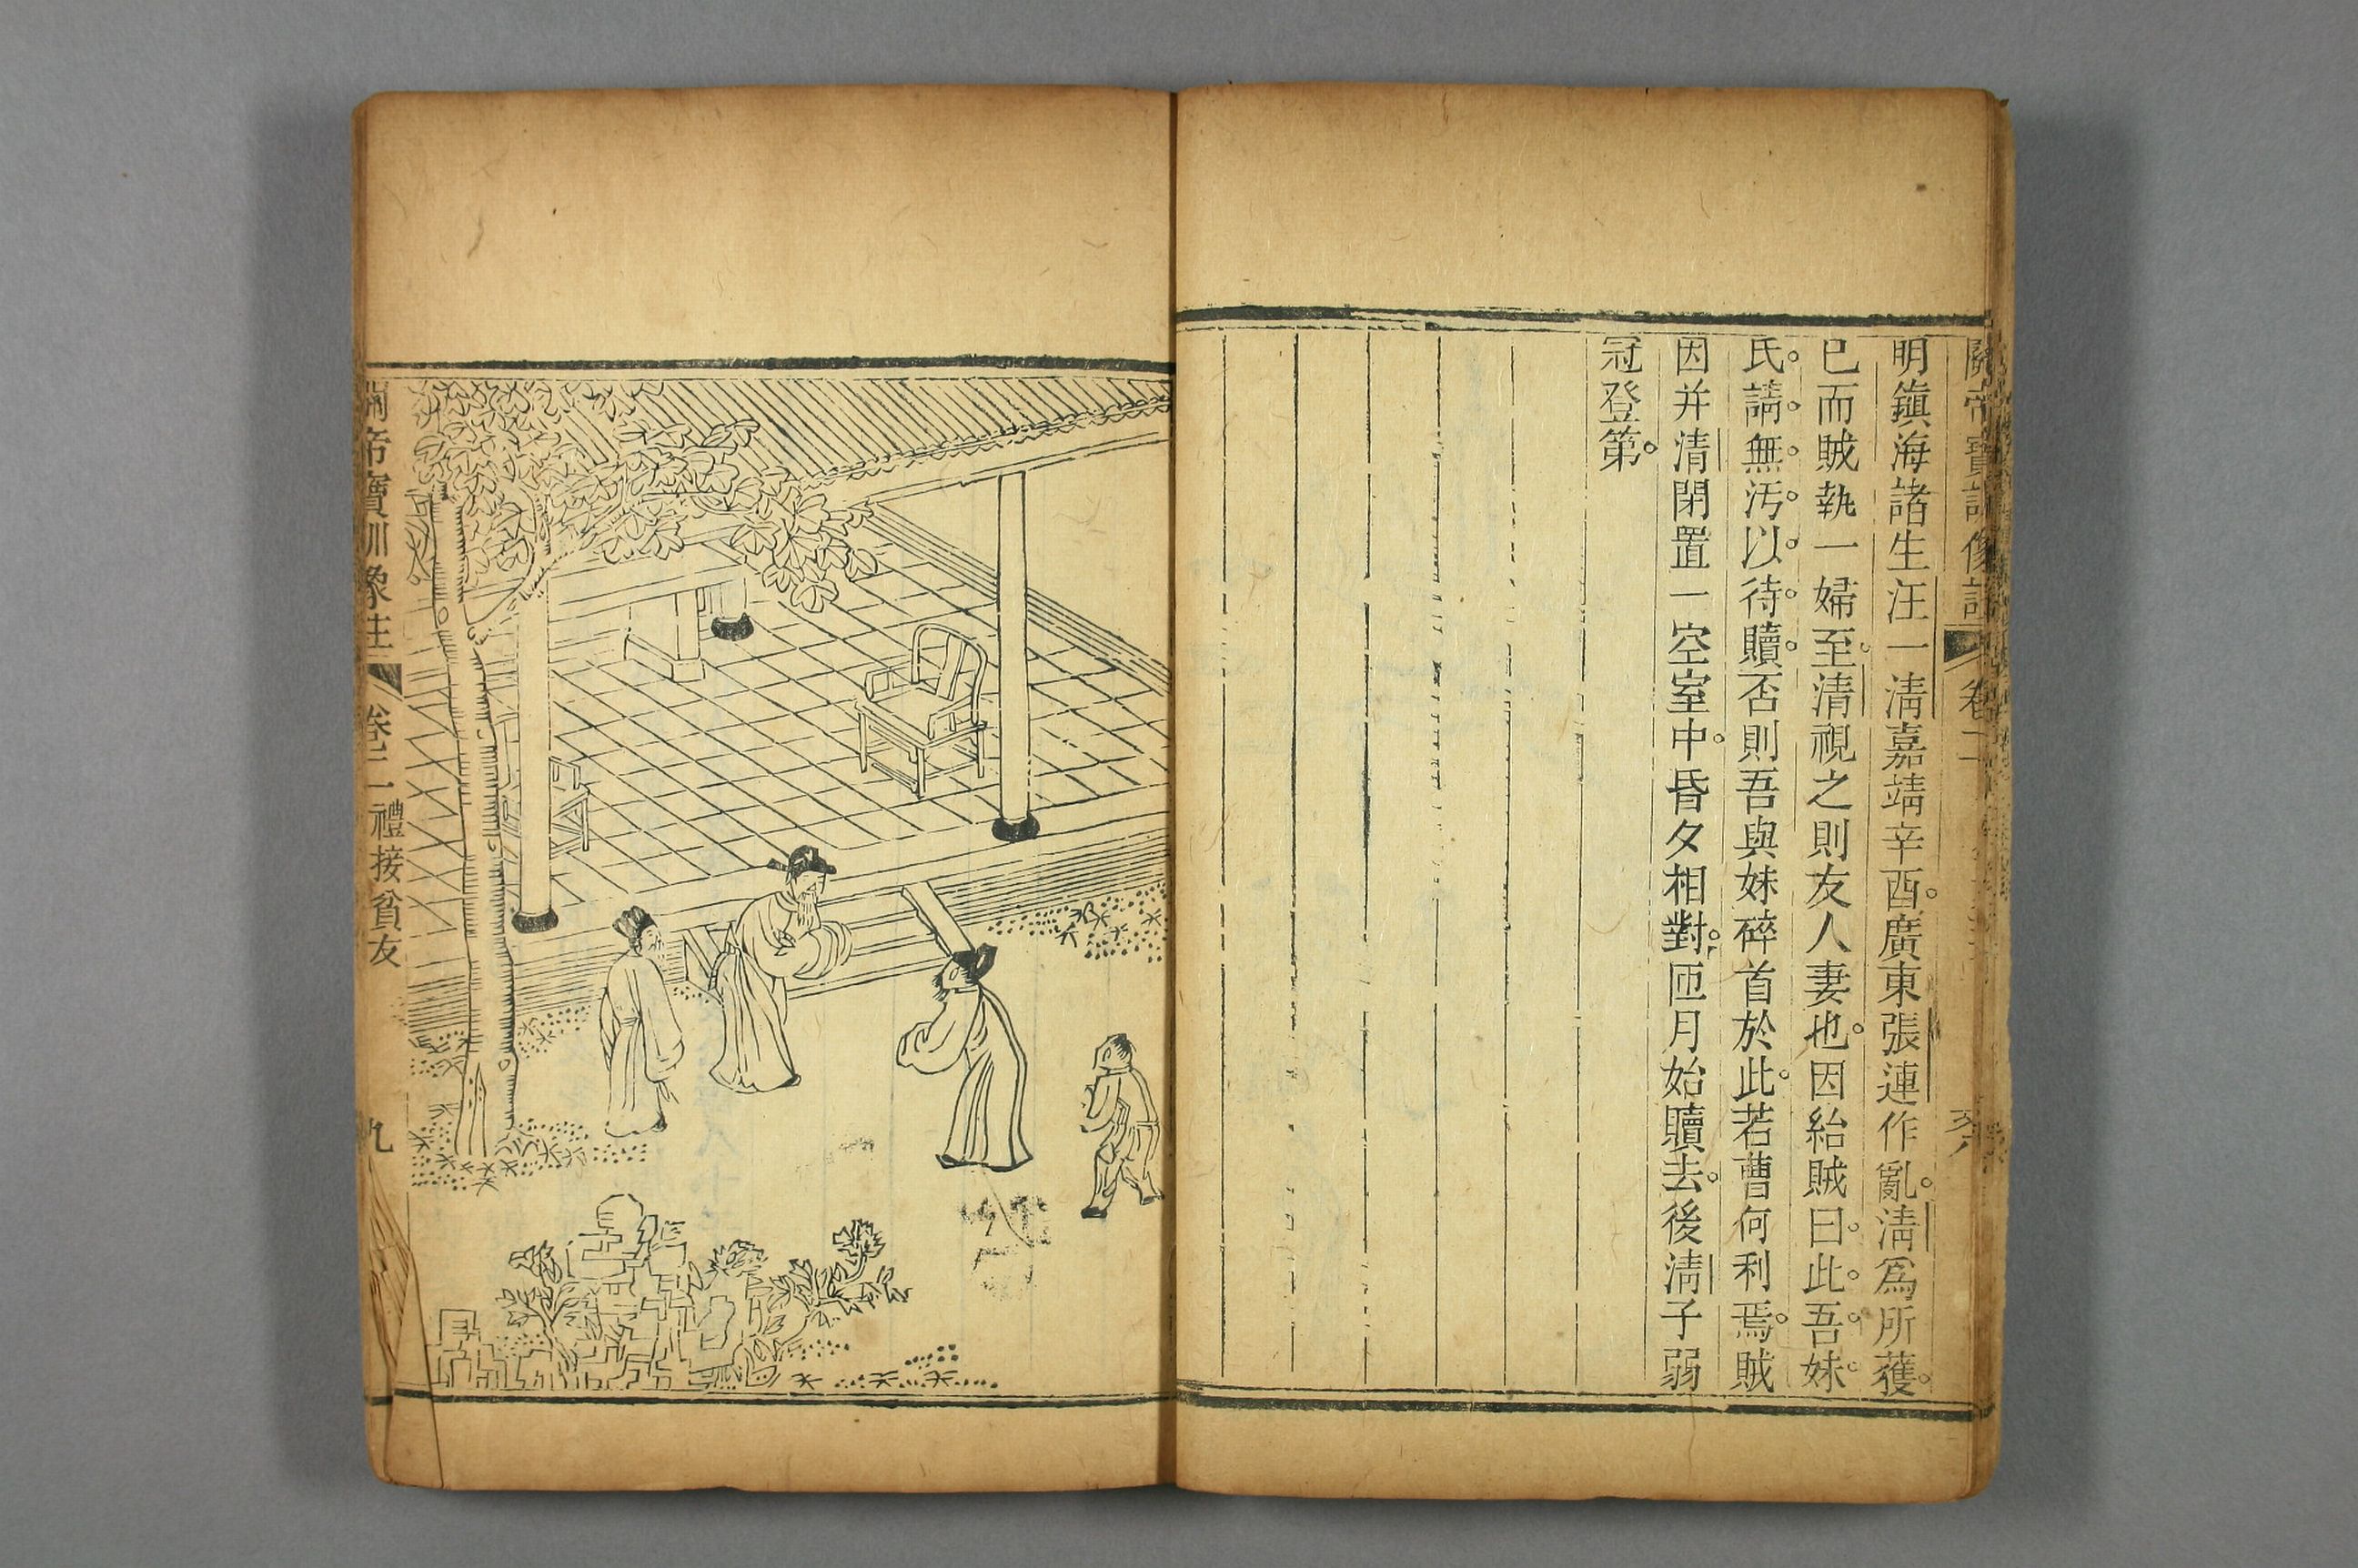 關帝寶訓像註 卷二
明鎮海諸生汪一淸嘉靖辛酉。廣東張連作亂。淸爲所獲。
已而賊執一婦至。清視之則友人妻也。因紿賊曰。此。吾。妹。
氏。請。無。汚。以。待。贖。否則吾與妹碎首於此。若曹何利焉。賊
因并清閉置一空室中。昏夕相對。匝月始贖去。後淸子弱
冠登第。
關帝寶訓像註 卷二 禮接貧友 九